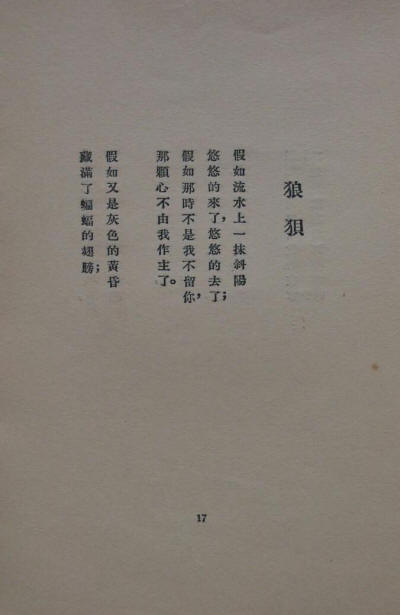 狼狽
假如流水上一抹斜陽
悠悠的來了，悠悠的去了；
假如那時不是我不留你，
那顆心不由我作主了。
假如又是灰色的黃昏
藏滿了蝙蝠的翅膀；
17